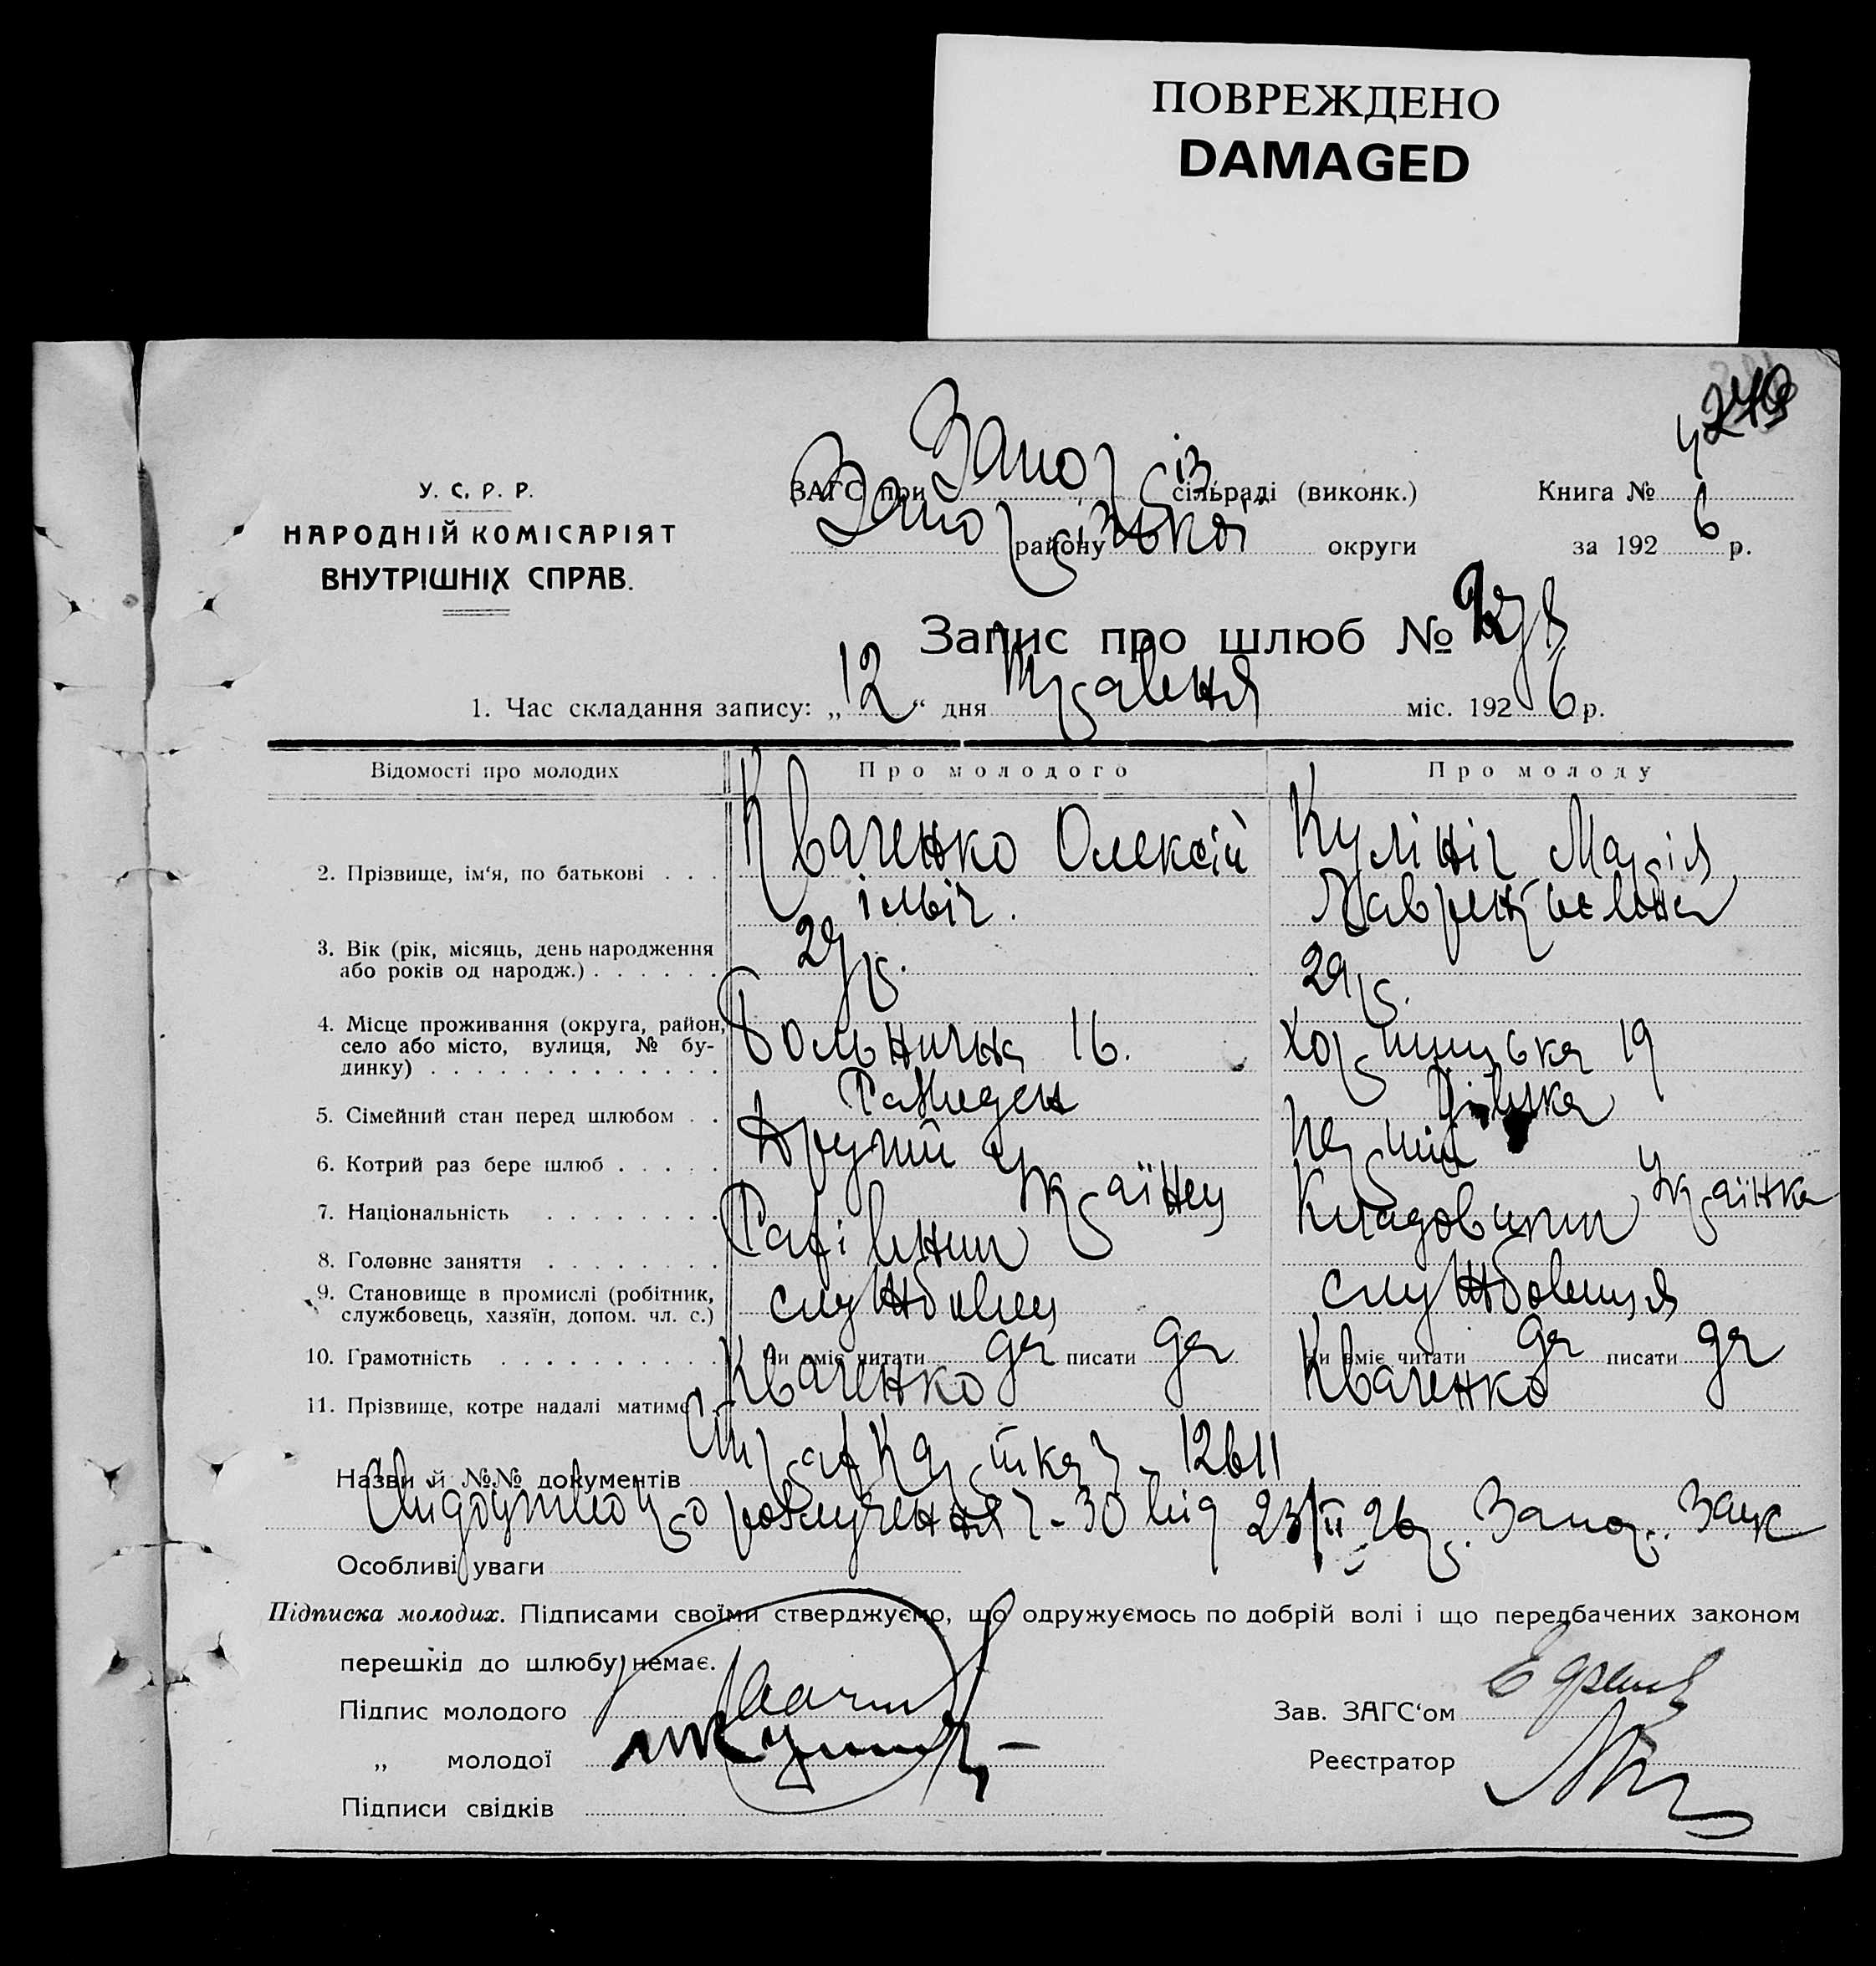 ПОВРЕЖДЕНО
DAMAGED
249
У. С. Р. Р.
НАРОДНІЙ КОМІСАРІЯТ
ВНУТРІШНІХ СПРАВ.
ЗАГС при Запоріз сільраді (виконк.)
Книга № 4
Запорізька району округи
за 1926 р.
Запис про шлюб №
1. Час складання запису: „12“ дня Травня міс. 1926 р.
Відомості про молодих
Про молодого
Про молоду
2. Прізвище, ім‘я, по батькові . . .
Кваченко Олексій
ілліч.
Кулініч Марія
Лаврентієвна
3. Вік (рік, місяць, день народження
або років од народж.) . . . . . .
29 р.
29 р.
4. Місце проживання (округа, район,
село або місто, вулиця, № бу-
динку) . . . . . . . . . . . . .
Больнична 16.
Хортицька 19
5. Сімейний стан перед шлюбом . .
Дівиця
6. Котрий раз бере шлюб . . . . .
Другий
Перший
7. Національність . . . . . . . .
Українець
Українка
8. Головне заняття . . . . . . . .
9. Становище в промислі (робітник,
службовець, хазяїн, допом. чл. с.)
службовець
службовиця
10. Грамотність . . . . . . . . . .
Чи вміє читати да писати да
Чи вміє читати да писати да
11. Прізвище, котре надалі матиме
Кваченко
Кваченко
Назви й №№ документів Страх Картка ч. 12611
про розлучення ч-30 від 23/II 26 р. Запор. Загс
Особливі уваги
Підписка молодих. Підписами своїми стверджуємо, що одружуємось по добрій волі і що передбачених законом
перешкід до шлюбу немає.
Підпис молодого
Зав. ЗАГС‘ом
„ молодої
Реєстратор
Підписи свідків